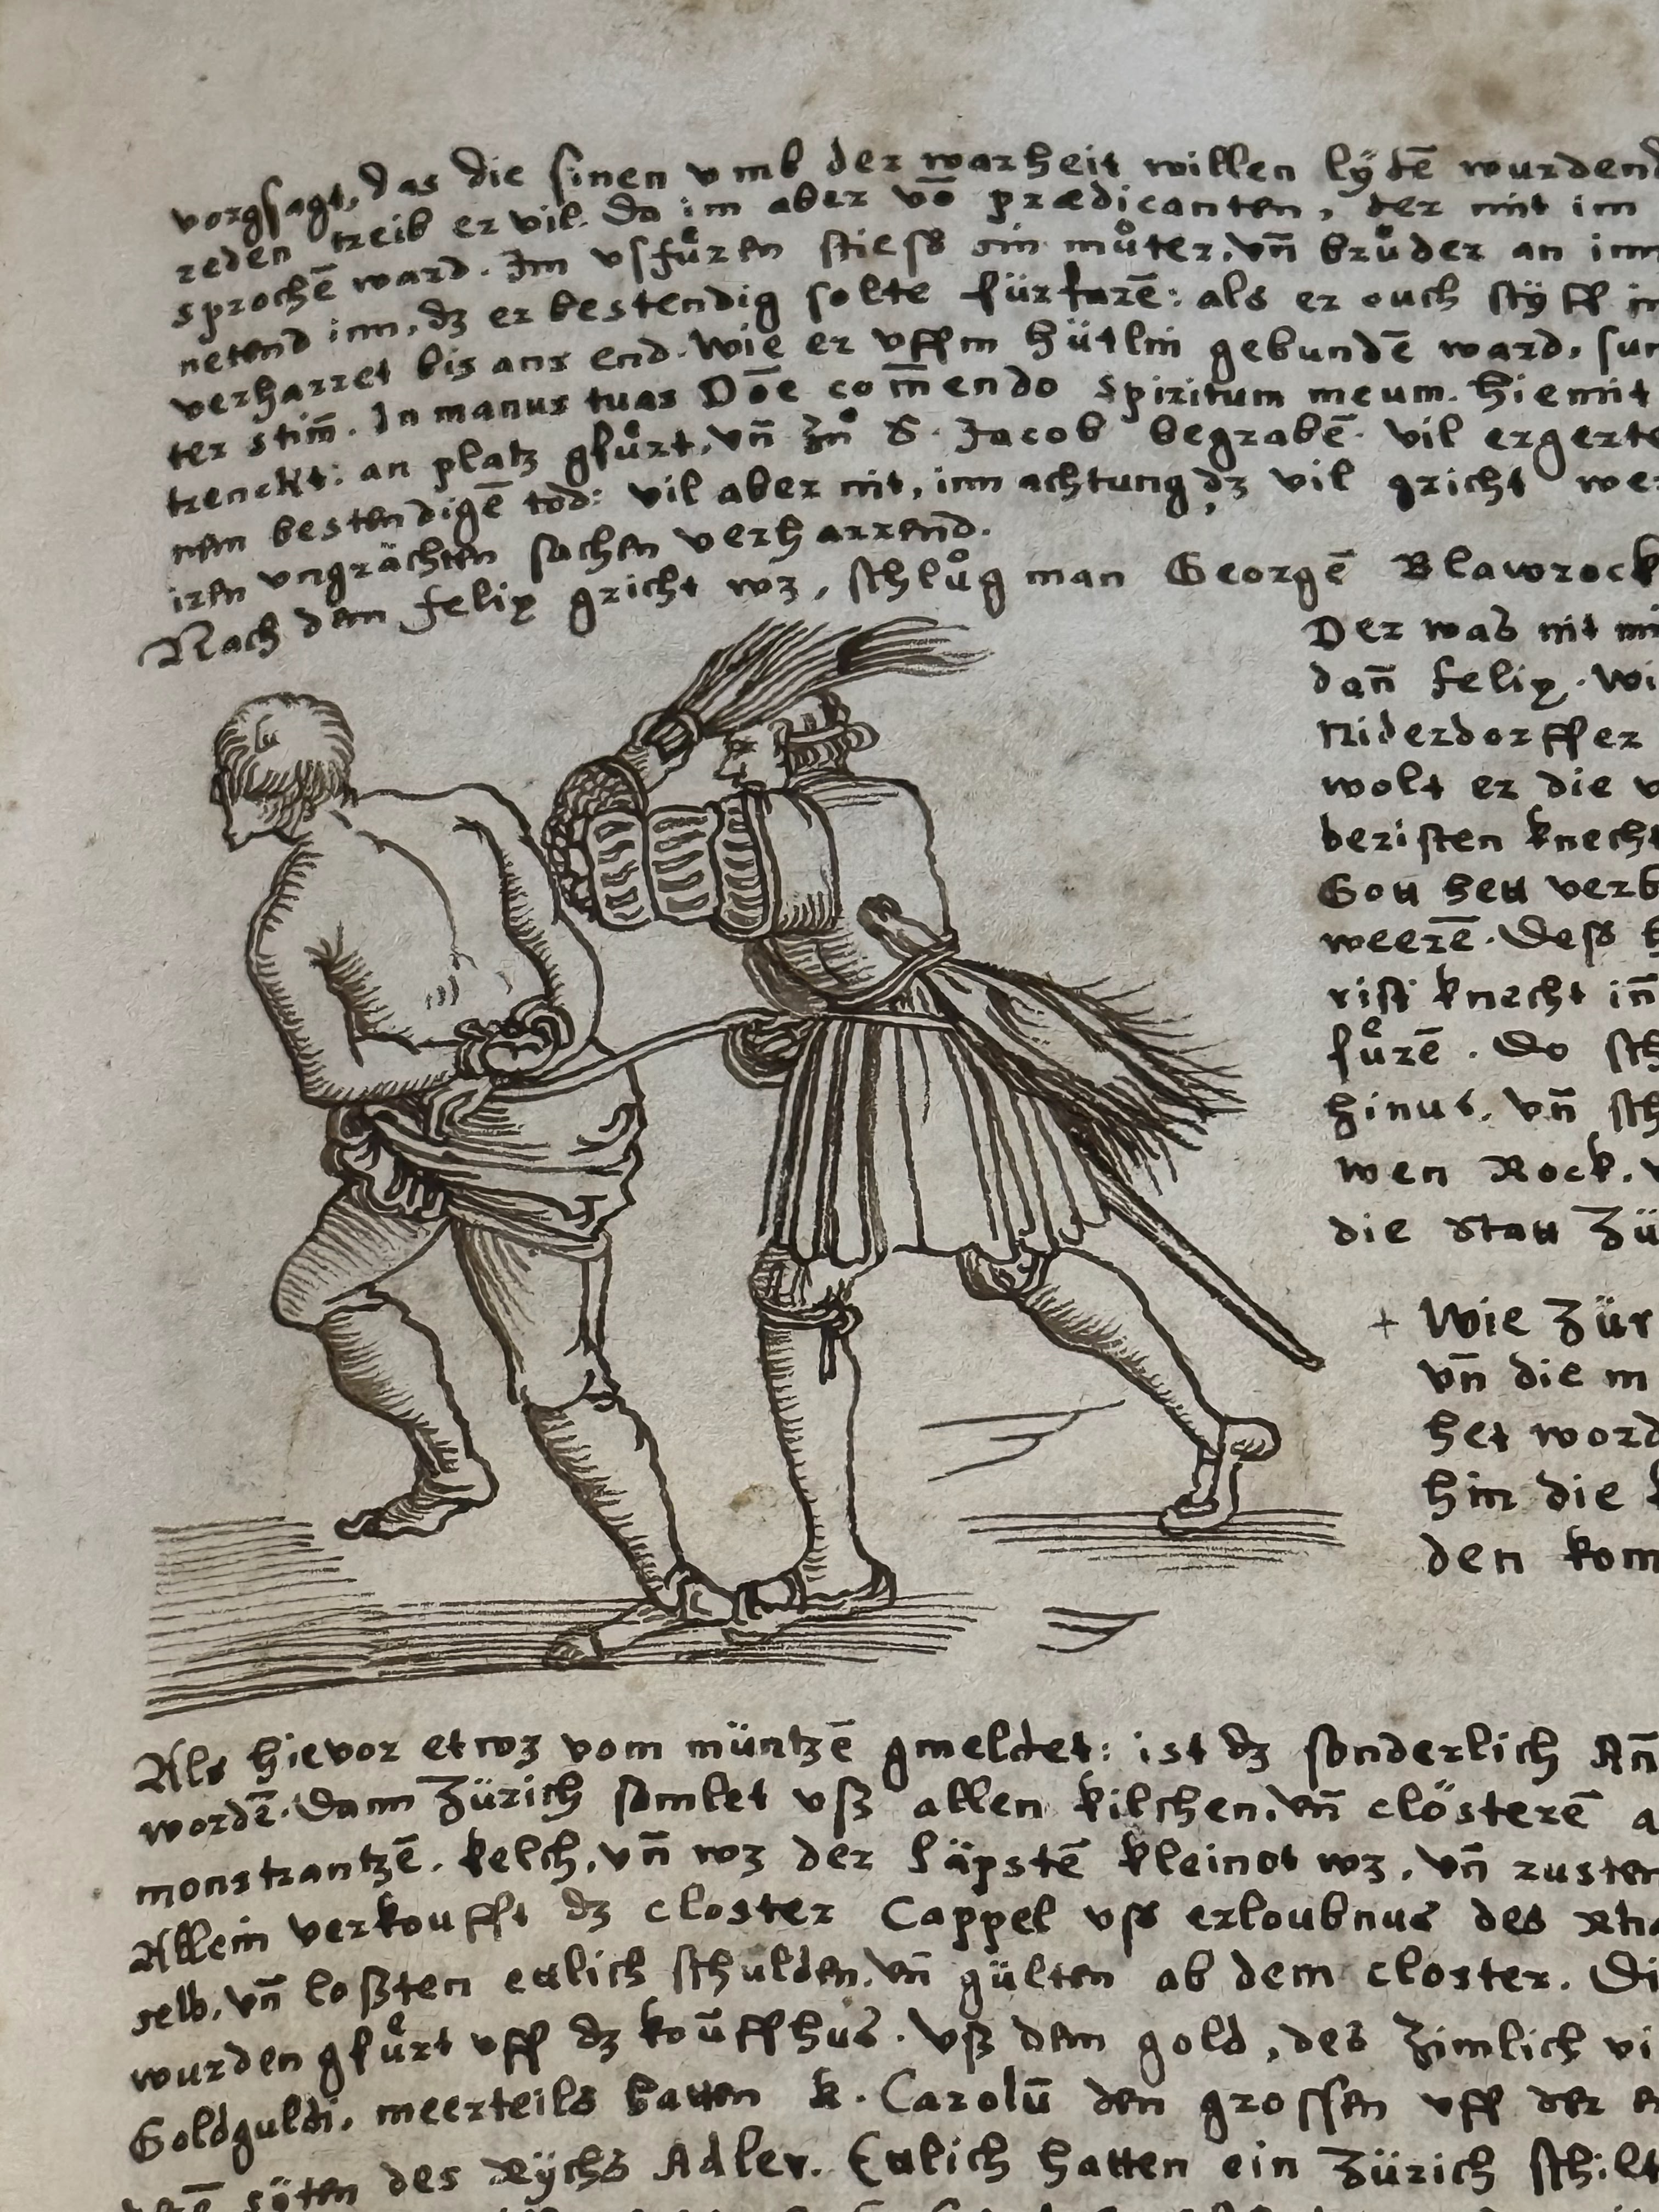 vorgsagt, das die sinen vmb der warheit willen lydē wurdend
reden treib er vil. Da im aber vō prædicanten, der mit im
sprochē ward. Im vsfůren stiess sin můter, vn̄ brůder an inn
netend inn, dz er bestendig solte fürfarē: als er ouch styff in
verharret bis ans end. Wie er vffm hütlin gebundē ward, sun
ter stim̄. In manus tuas Dōe com̄endo spiritum meum. Hiemit
trenckt: an platz gfůrt, vn̄ zů S. Jacob begrabē. Vil ergerte
nem bestendigē tod: vil aber nit, inn achtung dz vil gricht wer
iren vngrächten sachen verharrend.
Nach dem Felix gricht wz, schlůg man Georgē Blawrock
Der was nit mi
dan̄ Felix. Wi
Niderdorffer
wolt er die v
beristen knecht
Gott hett verb
weerē. Dess
rist knecht in̄
fůrē. Do sch
hinus, vn̄ sch
wen Rock. v
die statt Zü
+ Wie Zür
vn̄ die m
het word
hin die k
den kom
Als hievor etwz vom müntzē gmeldet: ist dz sonderlich An̄
wordē. Dann Zürich samlet vsz allen kilchen, vn̄ clösterē a
monstrantzē, kelch, vn̄ wz der läpstē kleinot wz, vn̄ rusten
Allein verkoufft dz closter Cappel vss erloubnus des Rha
selb, vn̄ loßten ettlich schulden, vn̄ gülten ab dem closter. Di
wurden gfůrt vff dz kouffhus. Vß dem gold, des zimlich vi
Goldguldi, meerteils hatten k. Carolū den grossen vff der e
syten des Rychs Adler. Ettlich hatten ein Zürich schilt